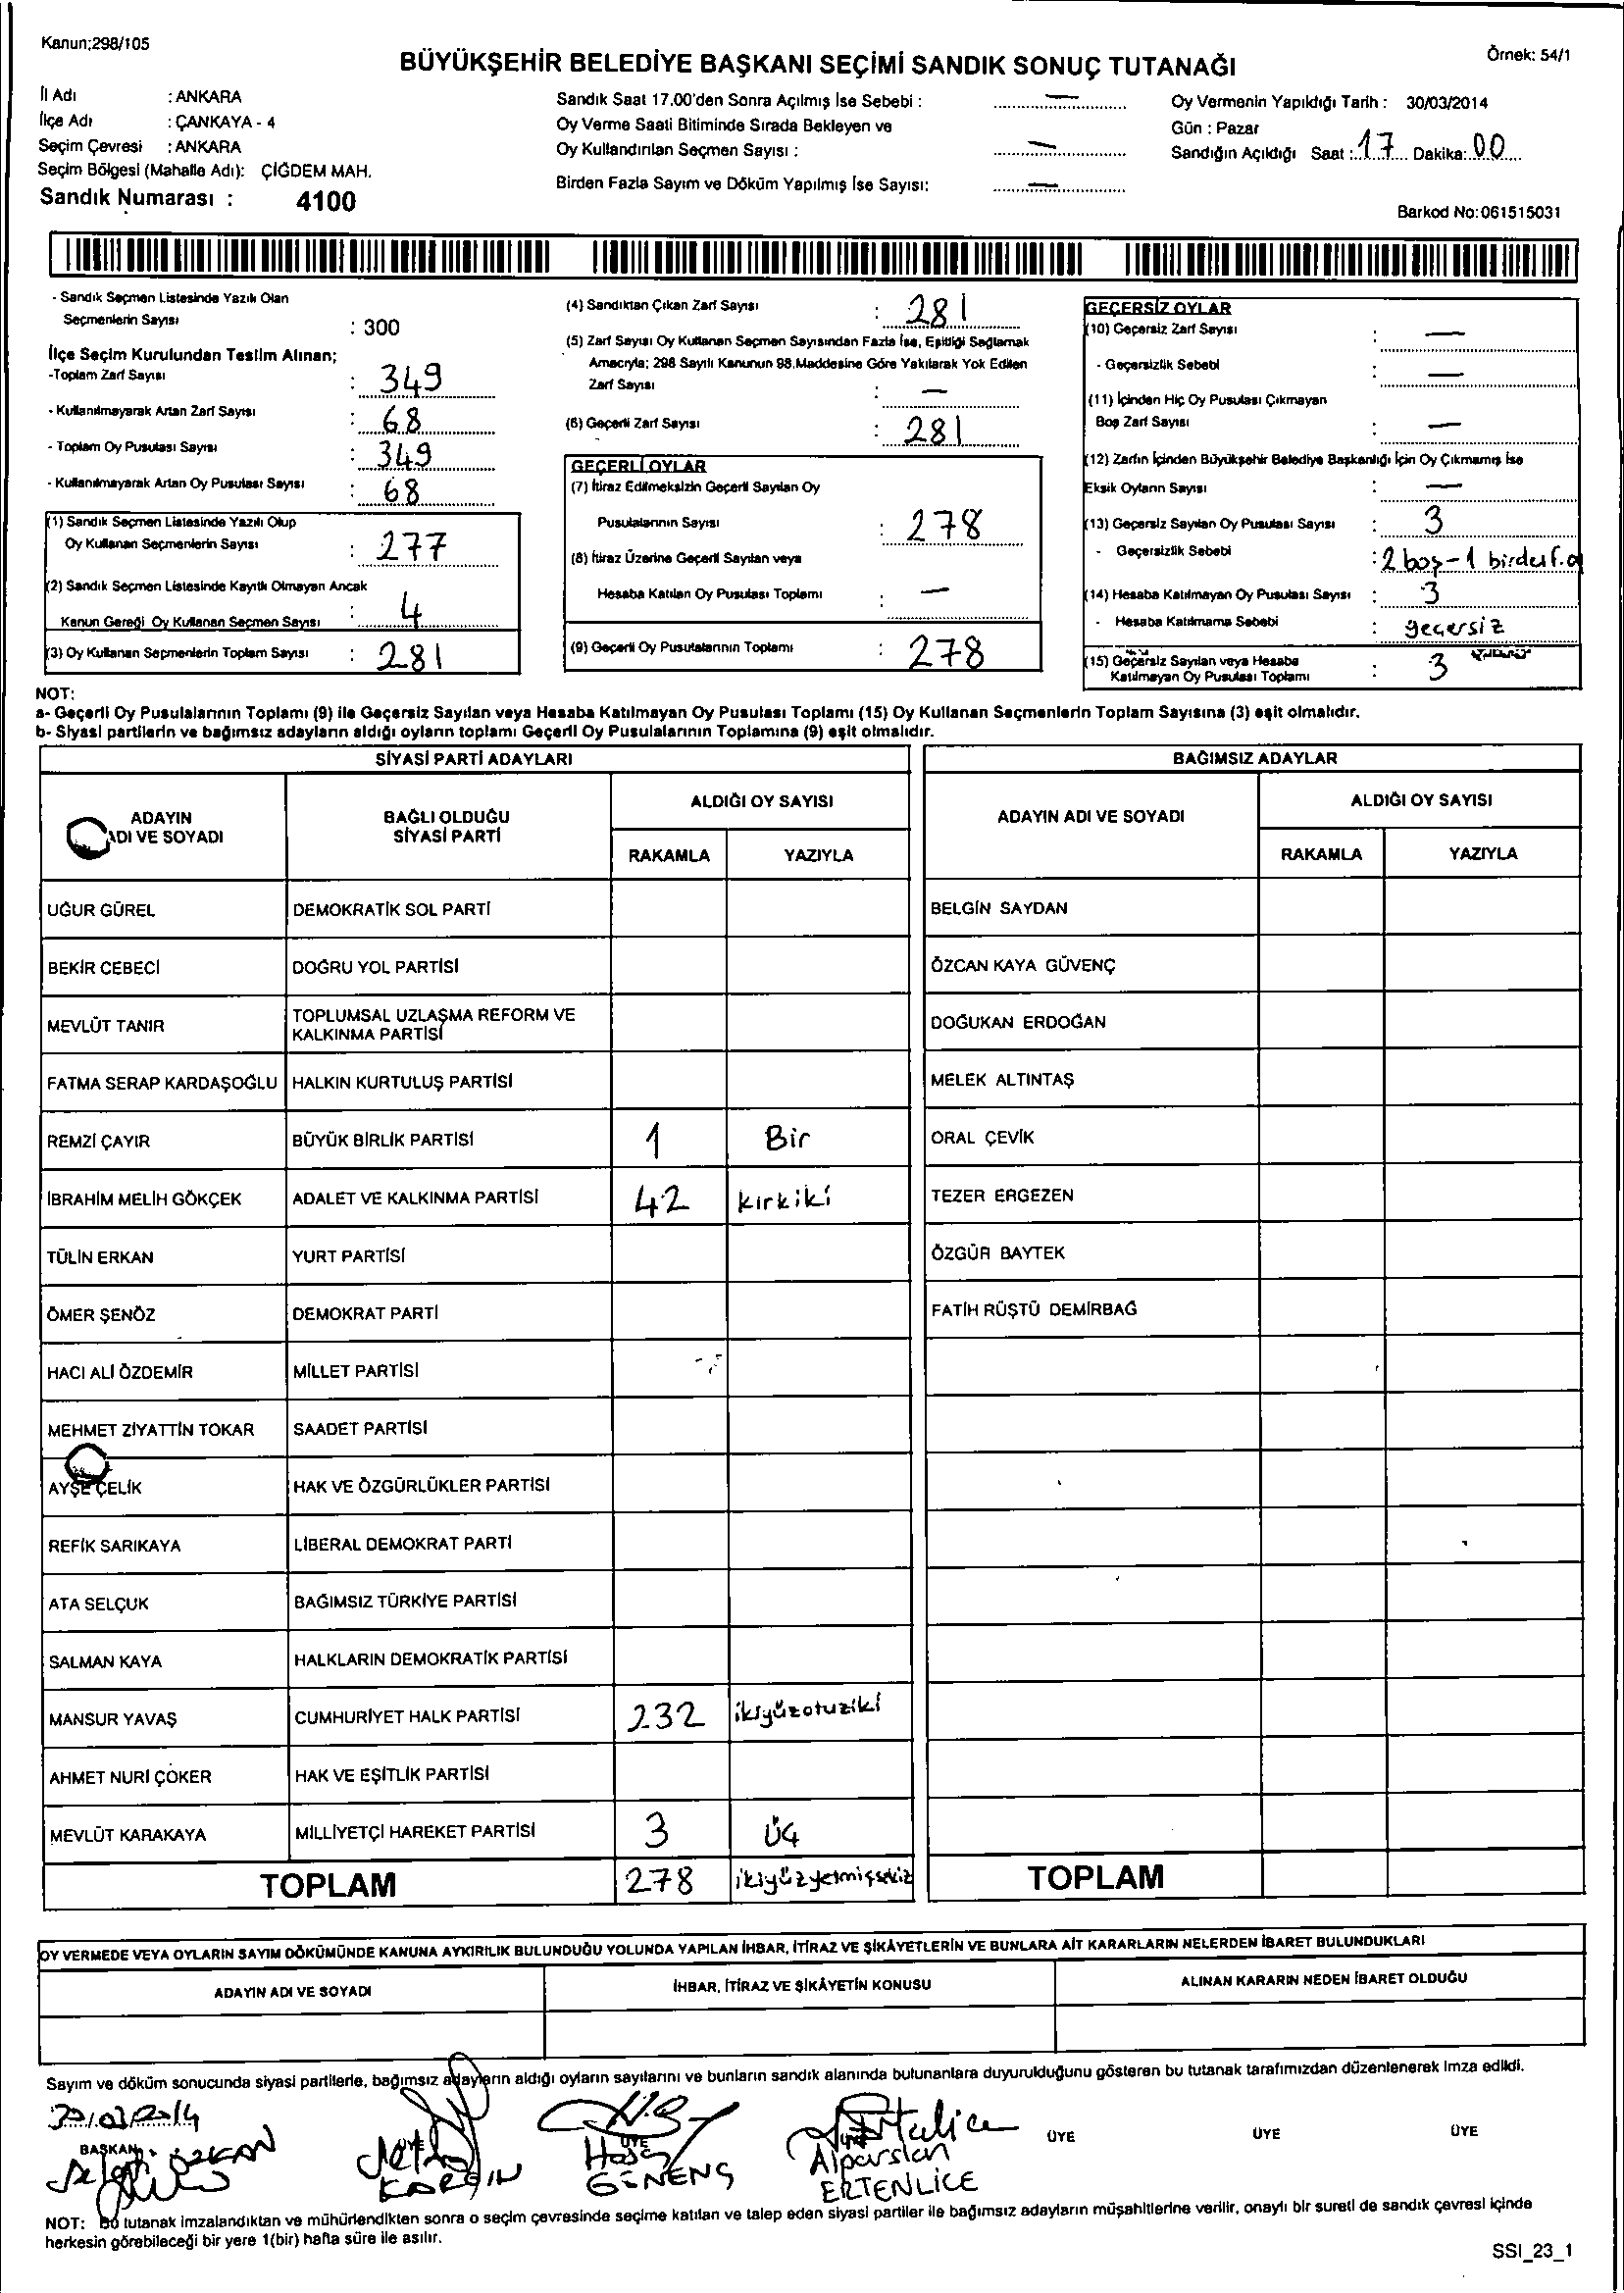 Kanun;298/105
BÜYÜKŞEHİR BELEDİYE BAŞKANI SEÇİMİ SANDIK SONUÇ TUTANAĞI
Örnek: 54/1
İl Adı : ANKARA
İlçe Adı : ÇANKAYA - 4
Seçim Çevresi : ANKARA
Seçim Bölgesi (Mahalle Adı): ÇİĞDEM MAH.
Sandık Numarası : 4100
Sandık Saat 17.00'den Sonra Açılmış İse Sebebi : —
Oy Verme Saati Bitiminde Sırada Bekleyen ve
Oy Kullandırılan Seçmen Sayısı : —
Birden Fazla Sayım ve Döküm Yapılmış İse Sayısı: —
Oy Vermenin Yapıldığı Tarih : 30/03/2014
Gün : Pazar
Sandığın Açıldığı Saat : 17 Dakika: 00
Barkod No:061515031
- Sandık Seçmen Listesinde Yazılı Olan
Seçmenlerin Sayısı : 300
İlçe Seçim Kurulundan Teslim Alınan;
-Toplam Zarf Sayısı : 349
- Kullanılmayarak Artan Zarf Sayısı : 68
- Toplam Oy Pusulası Sayısı : 349
- Kullanılmayarak Artan Oy Pusulası Sayısı : 68
(1) Sandık Seçmen Listesinde Yazılı Olup
Oy Kullanan Seçmenlerin Sayısı : 277
(2) Sandık Seçmen Listesinde Kayıtlı Olmayan Ancak
Kanun Gereği Oy Kullanan Seçmen Sayısı : 4
(3) Oy Kullanan Seçmenlerin Toplam Sayısı : 281
(4) Sandıktan Çıkan Zarf Sayısı : 281
(5) Zarf Sayısı Oy Kullanan Seçmen Sayısından Fazla İse, Eşitliği Sağlamak
Amacıyla; 298 Sayılı Kanunun 98.Maddesine Göre Yakılarak Yok Edilen
Zarf Sayısı : —
(6) Geçerli Zarf Sayısı : 281
GEÇERLİ OYLAR
(7) İtiraz Edilmeksizin Geçerli Sayılan Oy
Pusulalarının Sayısı : 278
(8) İtiraz Üzerine Geçerli Sayılan veya
Hesaba Katılan Oy Pusulası Toplamı : —
(9) Geçerli Oy Pusulalarının Toplamı : 278
GEÇERSİZ OYLAR
(10) Geçersiz Zarf Sayısı : —
- Geçersizlik Sebebi : —
(11) İçinden Hiç Oy Pusulası Çıkmayan
Boş Zarf Sayısı : —
(12) Zarfın İçinden Büyükşehir Belediye Başkanlığı İçin Oy Çıkmamış İse
Eksik Oyların Sayısı : —
(13) Geçersiz Sayılan Oy Pusulası Sayısı : 3
- Geçersizlik Sebebi : 2 boş - 1 birden f.
(14) Hesaba Katılmayan Oy Pusulası Sayısı : 3
- Hesaba Katılmama Sebebi : geçersiz
(15) Geçersiz Sayılan veya Hesaba
Katılmayan Oy Pusulası Toplamı : 3
NOT:
a- Geçerli Oy Pusulalarının Toplamı (9) ile Geçersiz Sayılan veya Hesaba Katılmayan Oy Pusulası Toplamı (15) Oy Kullanan Seçmenlerin Toplam Sayısına (3) eşit olmalıdır.
b- Siyasi partilerin ve bağımsız adayların aldığı oyların toplamı Geçerli Oy Pusulalarının Toplamına (9) eşit olmalıdır.
SİYASİ PARTİ ADAYLARI
BAĞIMSIZ ADAYLAR
ADAYIN
ADI VE SOYADI
BAĞLI OLDUĞU
SİYASİ PARTİ
ALDIĞI OY SAYISI
RAKAMLA YAZIYLA
ADAYIN ADI VE SOYADI
ALDIĞI OY SAYISI
RAKAMLA YAZIYLA
UĞUR GÜREL DEMOKRATİK SOL PARTİ BELGİN SAYDAN
BEKİR CEBECİ DOĞRU YOL PARTİSİ ÖZCAN KAYA GÜVENÇ
MEVLÜT TANIR TOPLUMSAL UZLAŞMA REFORM VE
KALKINMA PARTİSİ DOĞUKAN ERDOĞAN
FATMA SERAP KARDAŞOĞLU HALKIN KURTULUŞ PARTİSİ MELEK ALTINTAŞ
REMZİ ÇAYIR BÜYÜK BİRLİK PARTİSİ 1 Bir ORAL ÇEVİK
İBRAHİM MELİH GÖKÇEK ADALET VE KALKINMA PARTİSİ 42 kırkiki TEZER ERGEZEN
TÜLİN ERKAN YURT PARTİSİ ÖZGÜR BAYTEK
ÖMER ŞENÖZ DEMOKRAT PARTİ FATİH RÜŞTÜ DEMİRBAĞ
HACI ALİ ÖZDEMİR MİLLET PARTİSİ
MEHMET ZİYATTİN TOKAR SAADET PARTİSİ
AYŞE ÇELİK HAK VE ÖZGÜRLÜKLER PARTİSİ
REFİK SARIKAYA LİBERAL DEMOKRAT PARTİ
ATA SELÇUK BAĞIMSIZ TÜRKİYE PARTİSİ
SALMAN KAYA HALKLARIN DEMOKRATİK PARTİSİ
MANSUR YAVAŞ CUMHURİYET HALK PARTİSİ 232 ikiyüzotuziki
AHMET NURİ ÇÖKER HAK VE EŞİTLİK PARTİSİ
MEVLÜT KARAKAYA MİLLİYETÇİ HAREKET PARTİSİ 3 üç
TOPLAM 278 ikiyüzyetmişsekiz TOPLAM
OY VERMEDE VEYA OYLARIN SAYIM DÖKÜMÜNDE KANUNA AYKIRILIK BULUNDUĞU YOLUNDA YAPILAN İHBAR, İTİRAZ VE ŞİKÂYETLERİN VE BUNLARA AİT KARARLARIN NELERDEN İBARET BULUNDUKLARI
ADAYIN ADI VE SOYADI İHBAR, İTİRAZ VE ŞİKÂYETİN KONUSU ALINAN KARARIN NEDEN İBARET OLDUĞU
Sayım ve döküm sonucunda siyasi partilerle, bağımsız adayların aldığı oyların sayılarını ve bunların sandık alanında bulunanlara duyurulduğunu gösteren bu tutanak tarafımızdan düzenlenerek imza edildi.
30/03/2014
BAŞKAN ÜYE ÜYE ÜYE ÜYE ÜYE ÜYE
ÖZKAN
Alparslan
ERTENLİCE
NOT: Bu tutanak imzalandıktan ve mühürlendikten sonra o seçim çevresinde seçime katılan ve talep eden siyasi partiler ile bağımsız adayların müşahitlerine verilir, onaylı bir sureti de sandık çevresi içinde
herkesin görebileceği bir yere 1(bir) hafta süre ile asılır.
SSI_23_1